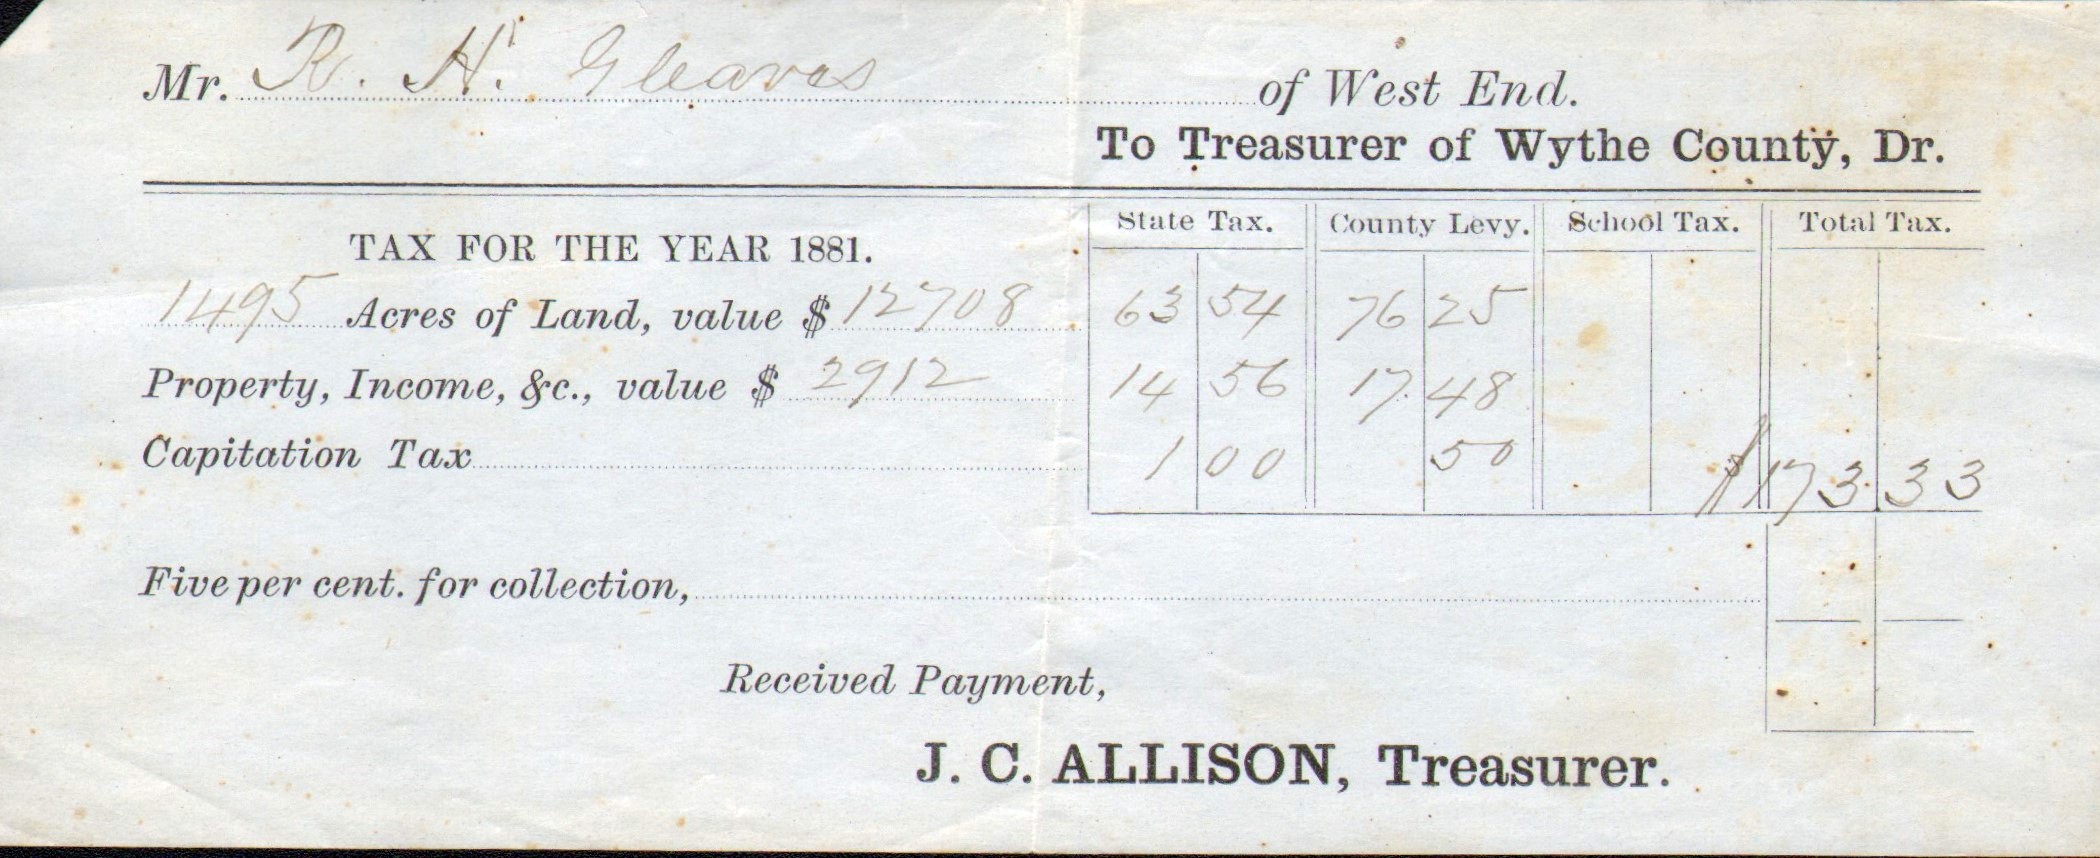 Mr. R. H. Gleaves of West End.
To Treasurer of Wythe County, Dr.
State Tax. County Levy. School Tax. Total Tax.
TAX FOR THE YEAR 1881.
1495 Acres of Land, value $ 12708 63 54 76 25
Property, Income, &c., value $ 2912 14 56 17 48
Capitation Tax 1 00 50 $173 33
Five per cent. for collection,
Received Payment,
J. C. ALLISON, Treasurer.